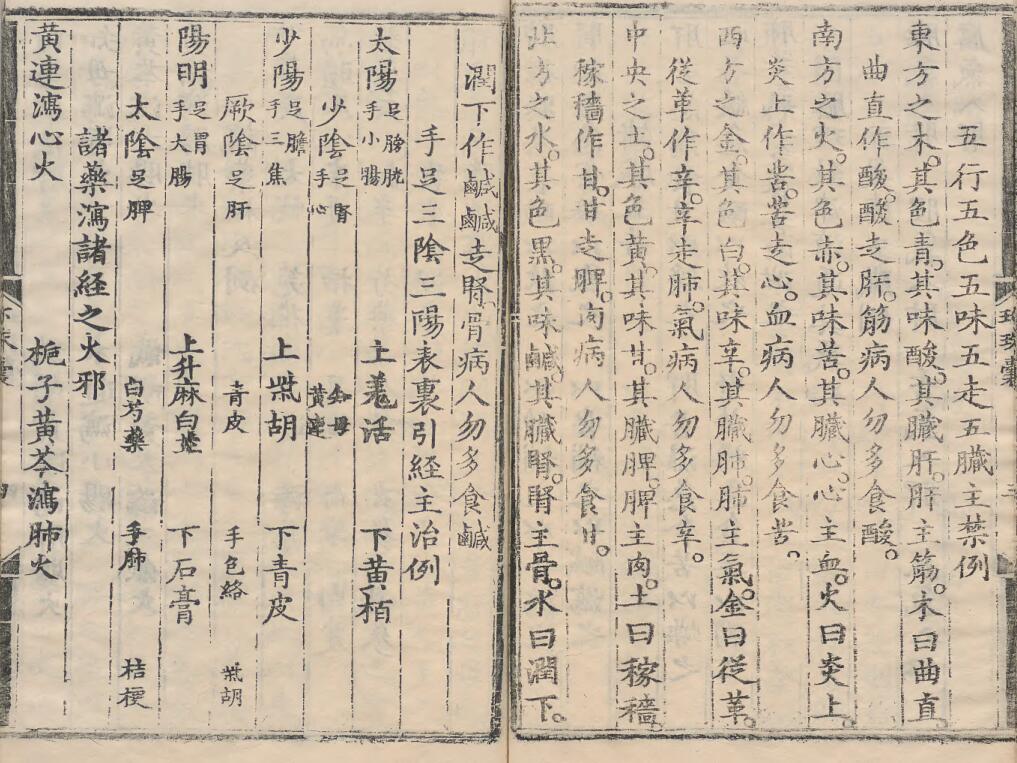 五行五色五味五走五臟主禁例
東方之木。其色青。其味酸。其臟肝。肝主筋。木曰曲直。
曲直作酸。酸走肝。筋病人勿多食酸。
南方之火。其色赤。其味苦。其臟心。心主血。火曰炎上。
炎上作苦。苦走心。血病人勿多食苦。
西方之金。其色白。其味辛。其臟肺。肺主氣。金曰從革。
從革作辛。辛走肺。氣病人勿多食辛。
中央之土。其色黃。其味甘。其臟脾。脾主肉。土曰稼穡。
稼穡作甘。甘走脾。肉病人勿多食甘。
北方之水。其色黑。其味鹹。其臟腎。腎主骨。水曰潤下。
潤下作鹹鹹走腎。骨病人勿多食鹹
手足三陰三陽表裏引經主治例
太陽 足膀胱 手小腸 上羗活 下黃栢
少陰 足腎 手心 知母 黃連
少陽 足膽 手三焦 上柴胡 下青皮
厥陰 足肝 青皮 手包絡 柴胡
陽明 足胃 手大腸 上升麻白芷 下石膏
太陰 足脾 白芍藥 手肺 桔梗
諸藥瀉諸経之火邪
黃連瀉心火 梔子黃芩瀉肺火
珍珠囊